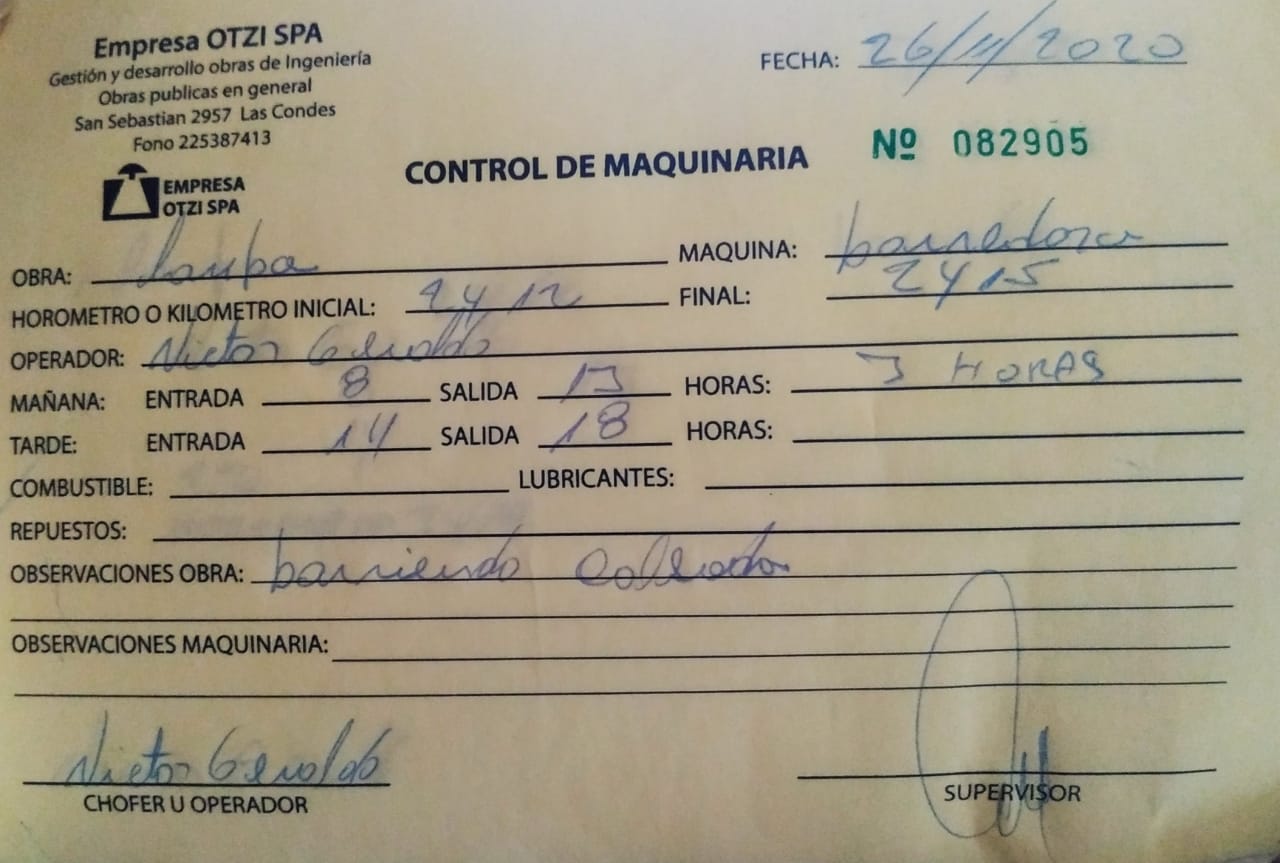 Empresa OTZI SPA
Gestión y desarrollo obras de Ingeniería
Obras publicas en general
San Sebastian 2957 Las Condes
Fono 225387413
EMPRESA
OTZI SPA
FECHA: 26/11/2020
Nº 082905
CONTROL DE MAQUINARIA
OBRA: Lampa MAQUINA: barredora
HOROMETRO O KILOMETRO INICIAL: 2412 FINAL: 2415
OPERADOR: Victor Geraldo
MAÑANA: ENTRADA 8 SALIDA 13 HORAS: 3 HORAS
TARDE: ENTRADA 14 SALIDA 18 HORAS:
COMBUSTIBLE: LUBRICANTES:
REPUESTOS:
OBSERVACIONES OBRA: barriendo
OBSERVACIONES MAQUINARIA:
Victor Geraldo
CHOFER U OPERADOR
SUPERVISOR